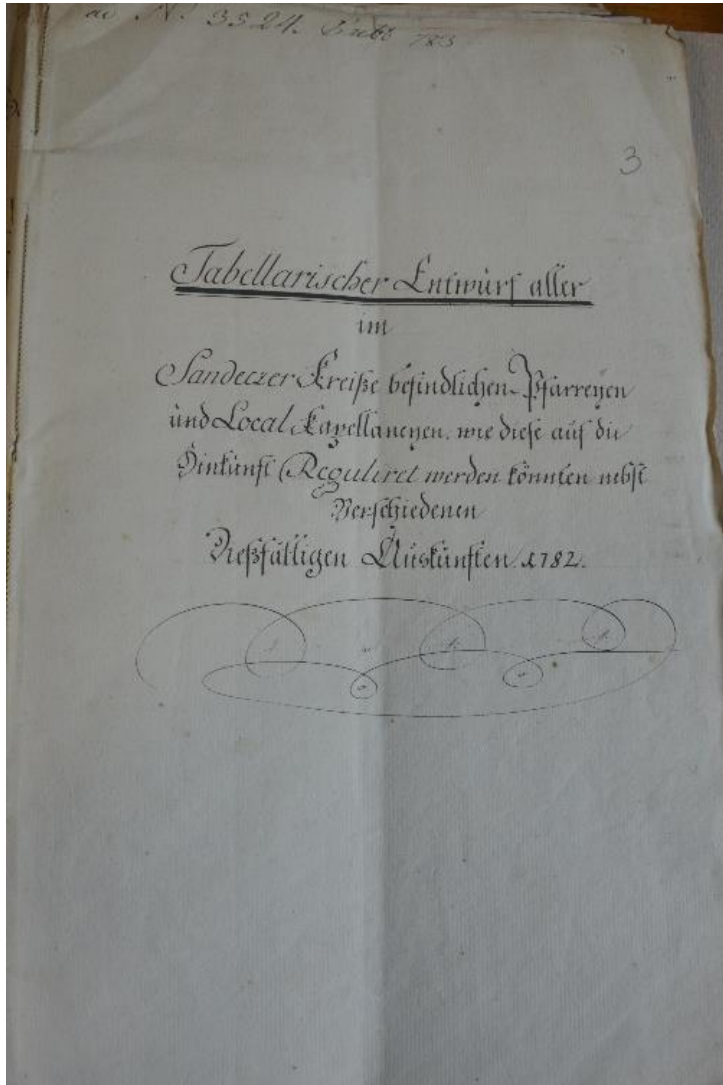 ad N. 3524. 783
3
Tabellarischer Entwurf aller
im
Sandeczer Kreiße befindlichen Pfarreyen
und Local Kapellaneyen, wie diese auf die
Hinkünft Reguliret werden könnten nebst
Verschiedenen
Dießfälligen Auskünften 1782.